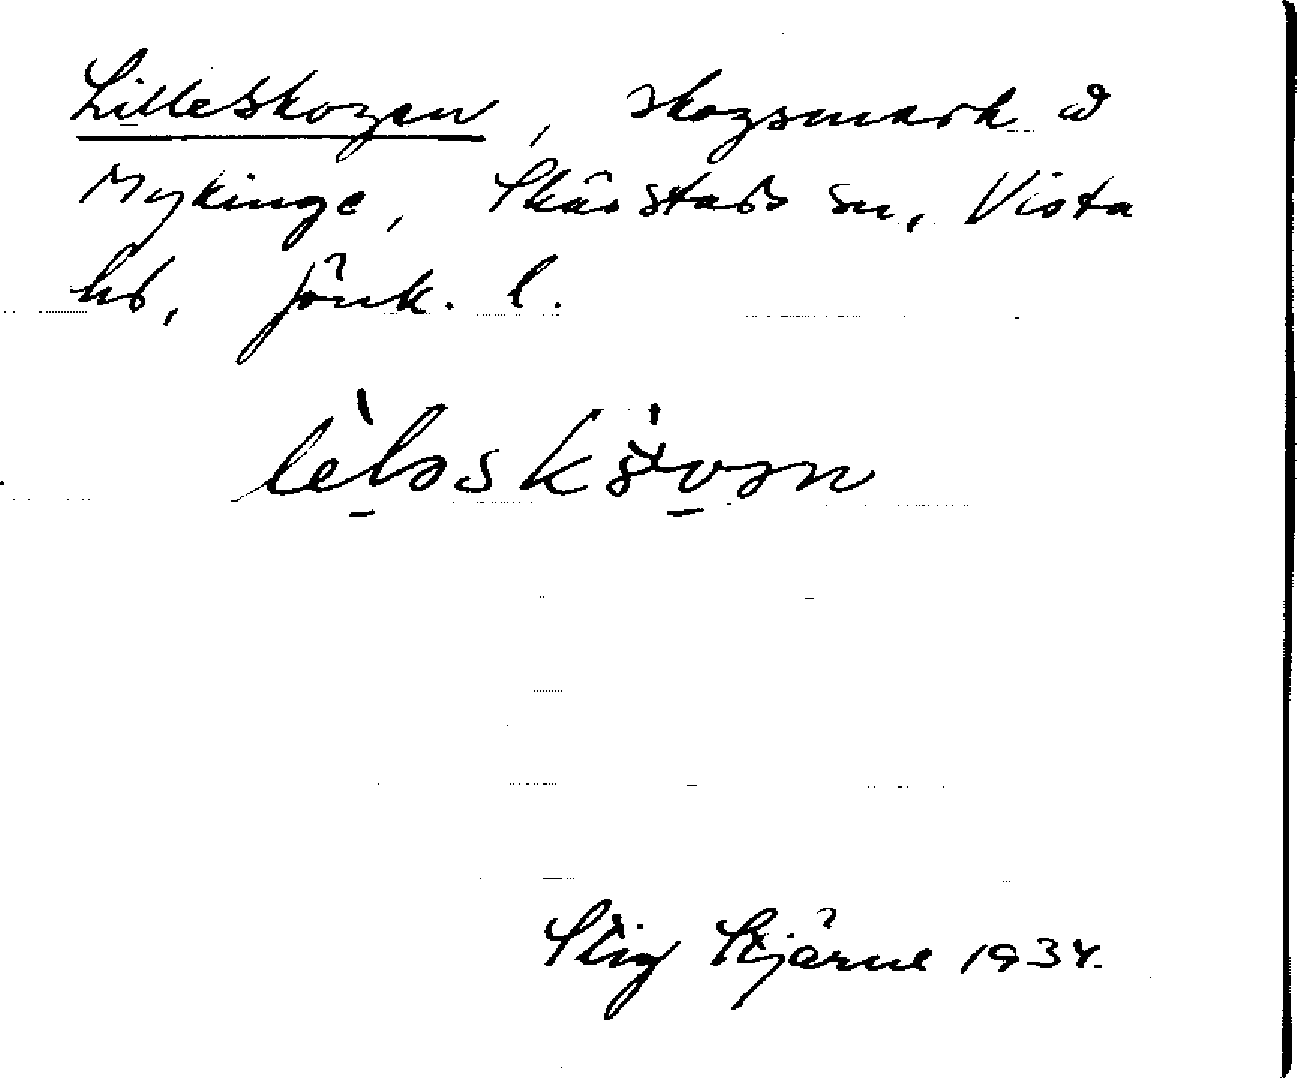 Lilleskogen, skogsmark å
Mykinge, Skärstads sn, Vista
hd, Jönk. l.
Stig Stjärne 1934.